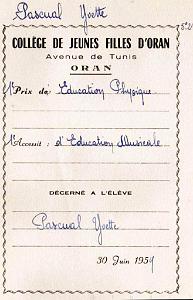 Pascual Yvette
COLLÈGE DE JEUNES FILLES D'ORAN
Avenue de Tunis
ORAN
1er Prix de Education Physique
1er Accessit : d'Education Musicale
DÉCERNÉ A L'ÉLÈVE
Pascual Yvette
30 Juin 1954